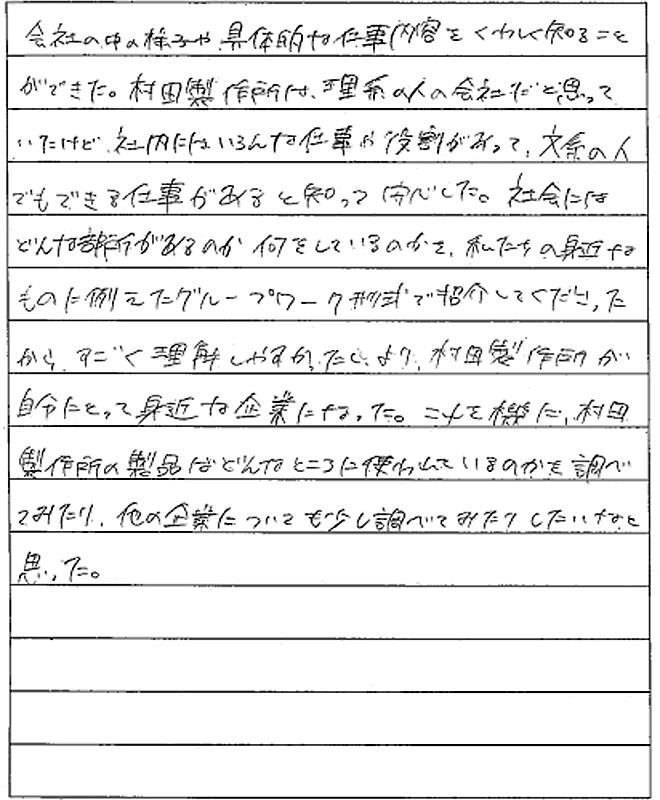 会社の中の様子や具体的な仕事内容をくわしく知ること
ができた。村田製作所は、理系の人の会社だと思って
いたけど、社内にはいろんな仕事や役割があって、文系の人
でもできる仕事があると知って安心した。社会には
どんな部所があるのか何をしているのかを、私たちの身近な
ものに例えたグループワーク形式で紹介してくださった
から、すごく理解しやすかったし、より、村田製作所が
自分にとって身近な企業になった。これを機に、村田
製作所の製品はどんなところに使われているのかを調べ
てみたり、他の企業についても少し調べてみたりしたいなと
思った。